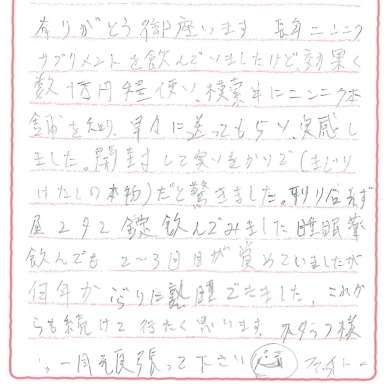 有りがとう御座います 長年ニンニク
サプリメントを飲んでいましたけど効果く
数十万円程使い、模索中にニンニク本
舗を知り、早々に送ってもらい、実感し
ました。開封して臭いをかりで(まじり
けなしの本物)だと驚きました。取り合えず
昼2夕2錠飲んでみました 睡眠薬
飲んでも 2〜3回目が覚めていましたが
何年かぶりに熟睡できました、これか
らも続けて行たく思います スタッフ様
一同頑張って下さい ファイト